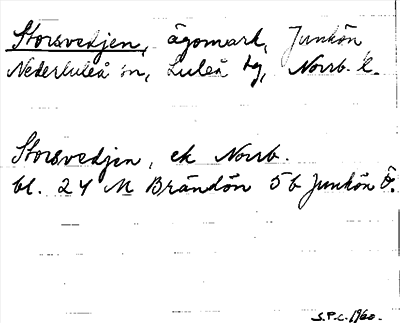 Storsvedjen, ägomark, Junkön
Nederluleå sn, Luleå tg, Norrb. l.
Storsvedjen, ek Norrb.
bl. 24 M Brändön 5b Junkön Ö.
S.P.C. 1960.